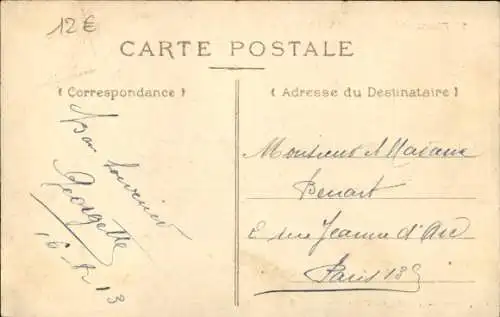 12€
CARTE POSTALE
(Correspondance)
(Adresse du Destinataire)
Bon Souvenir
Georgette
13
Monsieur et Madame
Benart
rue Jeanne d'Arc
Paris 13e